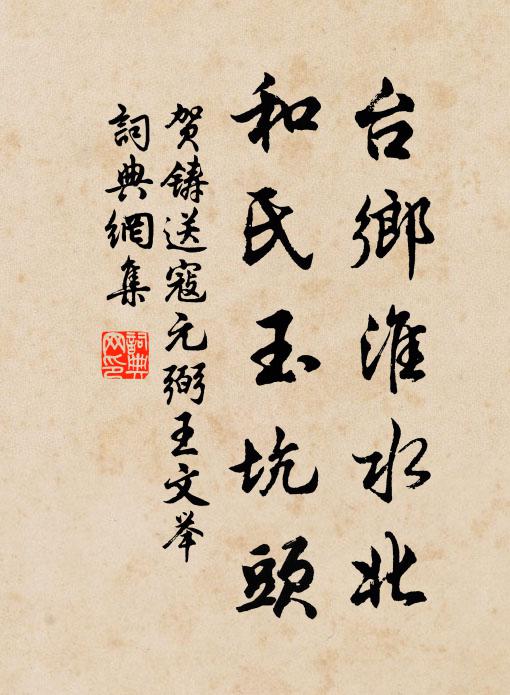 台鄉淮水北
和氏玉坑頭
贺鑄送寇元弼王文举
詞典網集
詞典网印